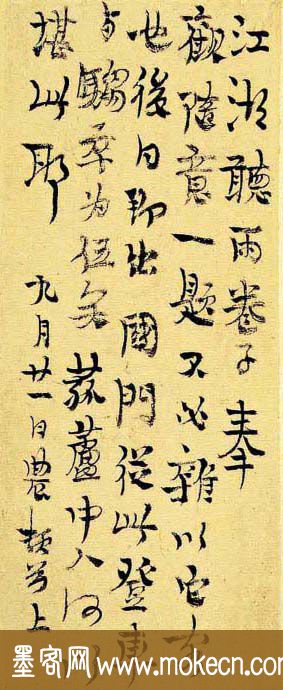 江湖聽雨卷子奉
觀隨意一題不必雜以它
也後日即出國門從此登車
与騶卒为伍矣菰蘆中人何
堪此耶 九月廿一日農頓首上
墨客网 www.mokecn.com